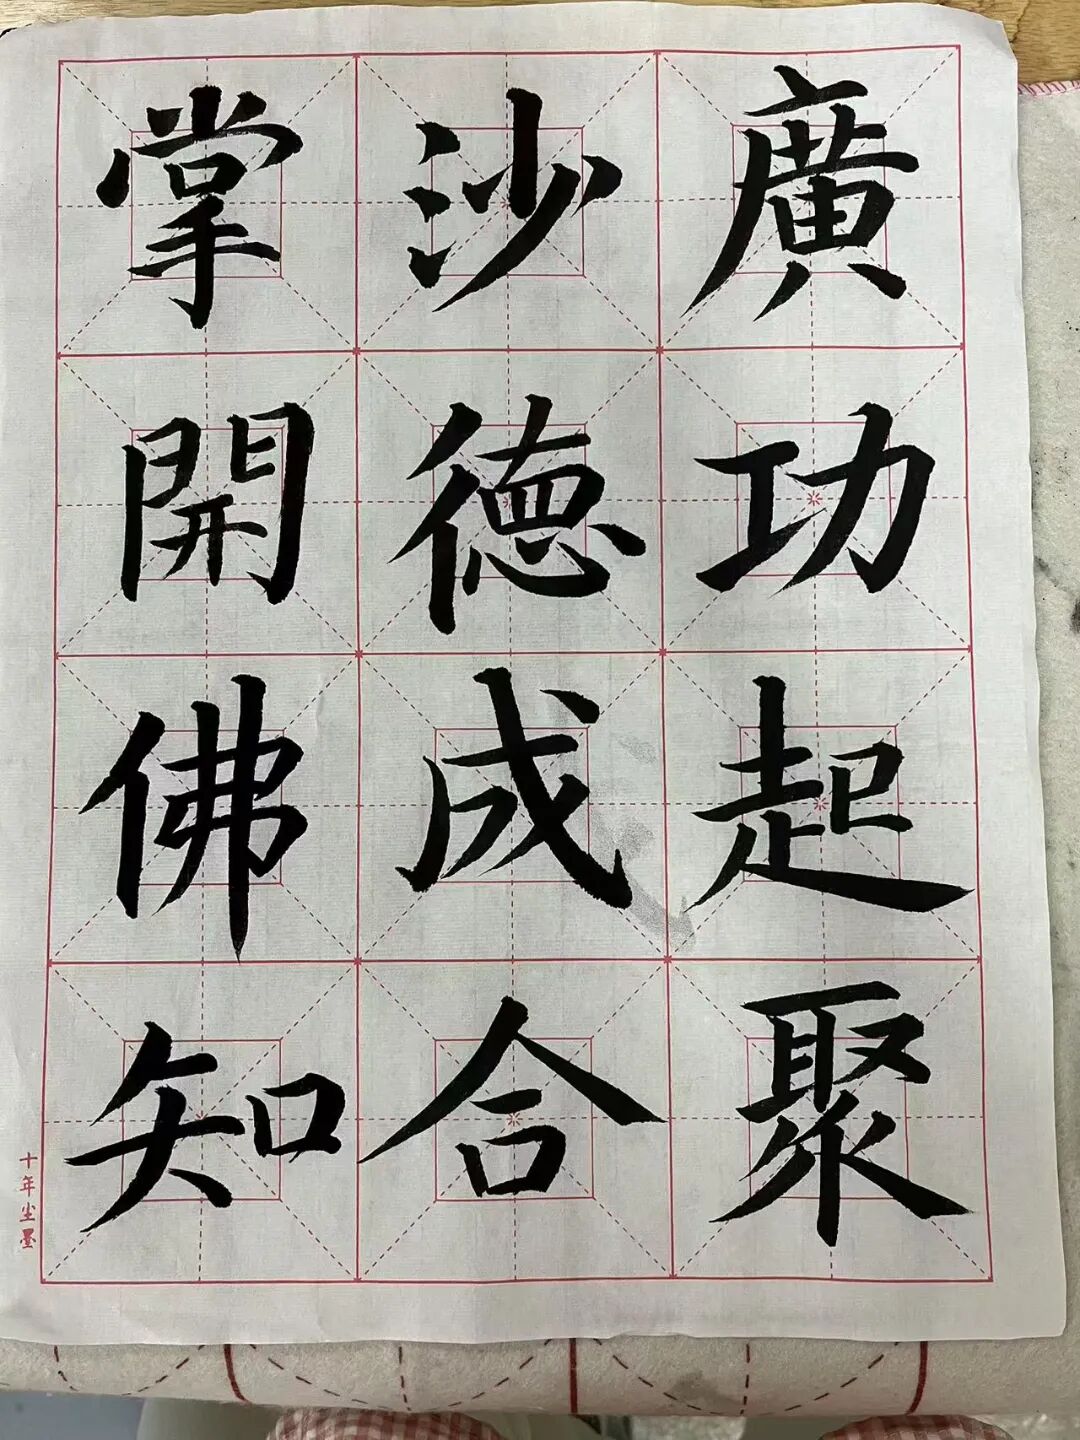 廣功起聚
沙德成合
掌開佛知
十年尘墨